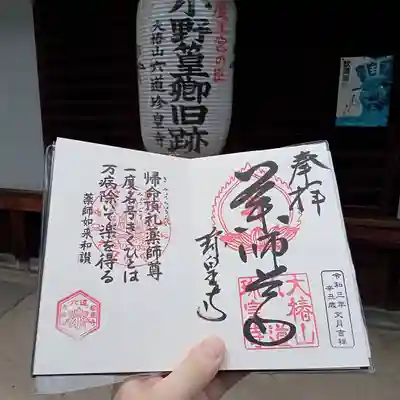 小野篁卿旧跡
大椿山六道珍皇寺
奉拝
薬師尊
珍皇寺
大椿山
令和三年文月吉祥
辛丑歳
帰命頂礼薬師尊
一度名号きくひとは
万病除いて楽を得る
薬師如来和讃
六道